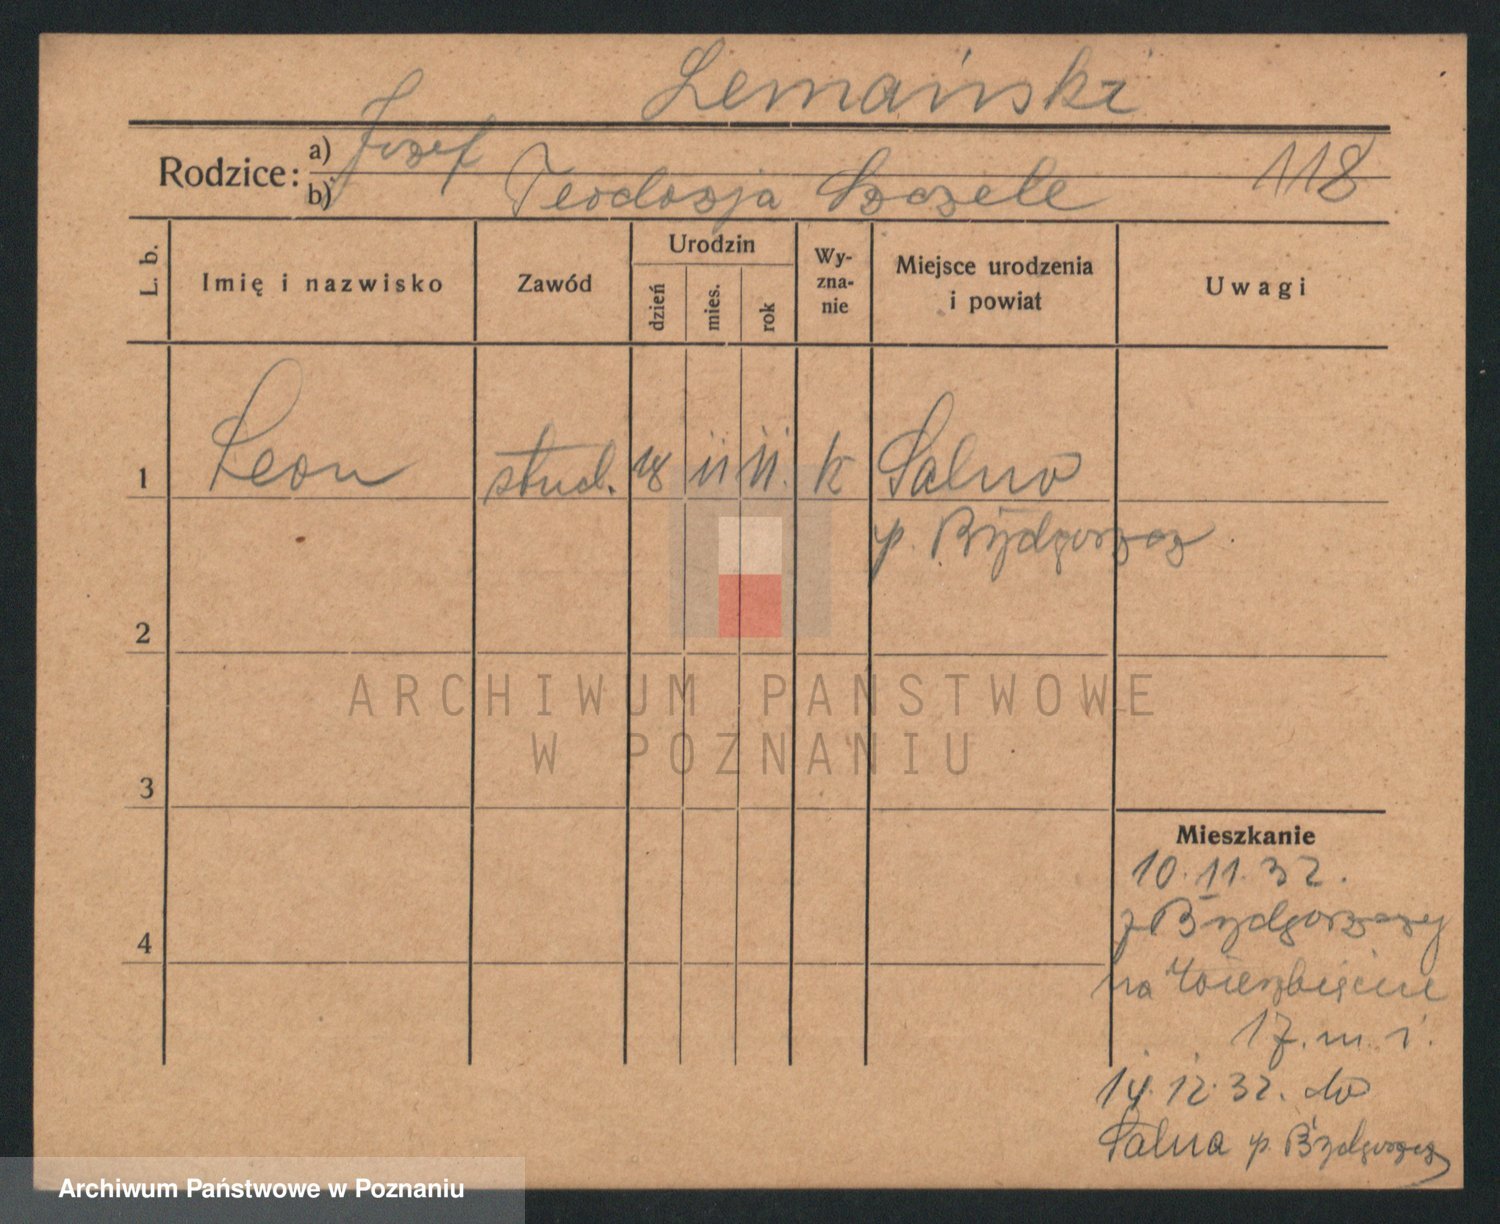 Lemański
Rodzice: a) Józef
b) Teodozja Szczele
118
L. b.
Imię i nazwisko
Zawód
Urodzin
dzień
mies.
rok
Wy-
zna-
nie
Miejsce urodzenia
i powiat
Uwagi
1 Leon stud. 18 11 11. k Salno
p. Bydgoszcz
2
3
4
Mieszkanie
10.11.32.
z Bydgoszczy
na Wierzbięcice
17. m. 1.
14.12.32. do
Salna p. Bydgoszcz
ARCHIWUM PAŃSTWOWE
W POZNANIU
Archiwum Państwowe w Poznaniu